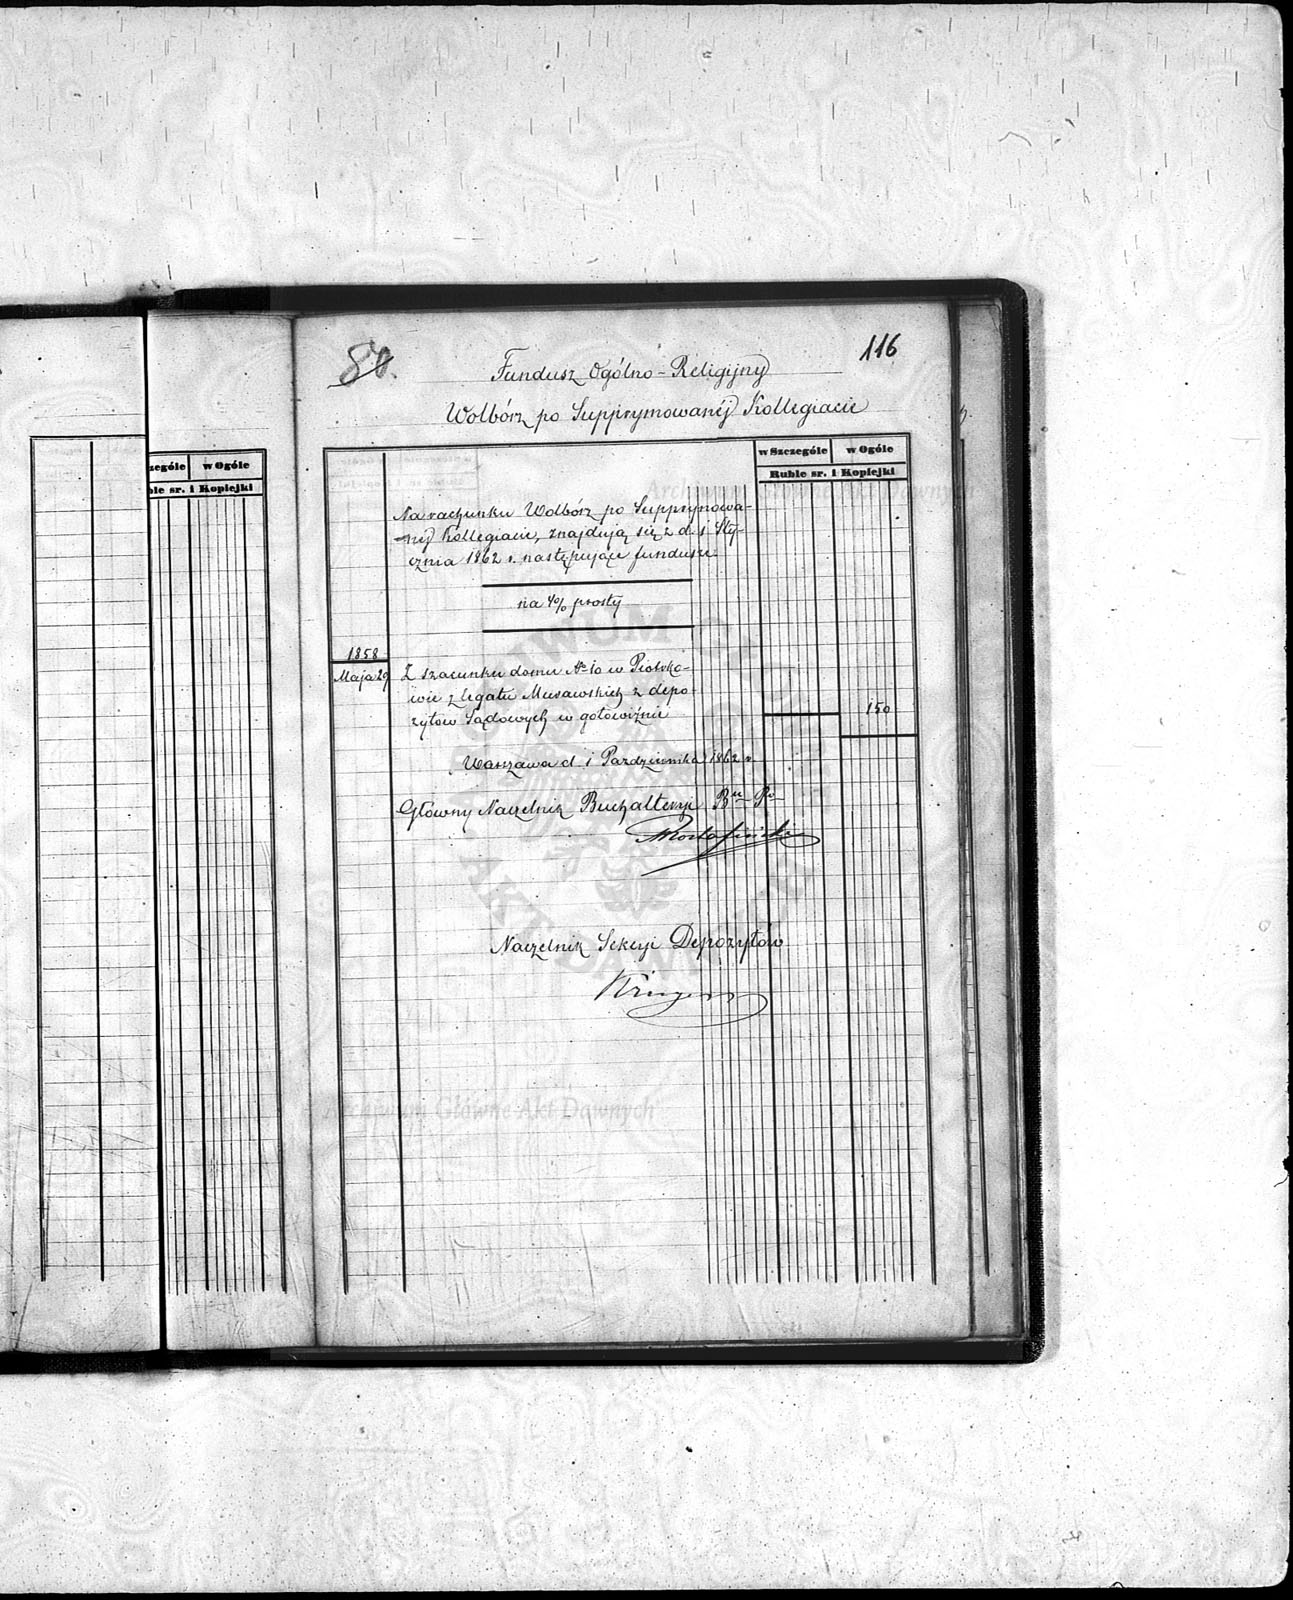 116
Fundusz Ogólno-Religijny
Wolbórz po Supprymowanéj Kollegiacie
w Szczególe w Ogóle
Ruble sr. i Kopiejki
w Ogóle
sr. i Kopiejki
Na rachunku Wolbórz po Supprymowa-
néj Kollegiacie, znajdują się z d. 1 Sty-
cznia 1862 r. następujące fundusze
na 4% prosty
1858
Maja 29 Z szacunku domu № 10 w Piotrko-
wie z legatu Murawskich z depo-
zytów Sądowych w gotowiźnie 150
Warszawa d. 1 Października 1862 r.
Główny Naczelnik Buchalteryi
Naczelnik Sekcyi Depozytów
Archiwum Główne Akt Dawnych
Archiwum Główne Akt Dawnych